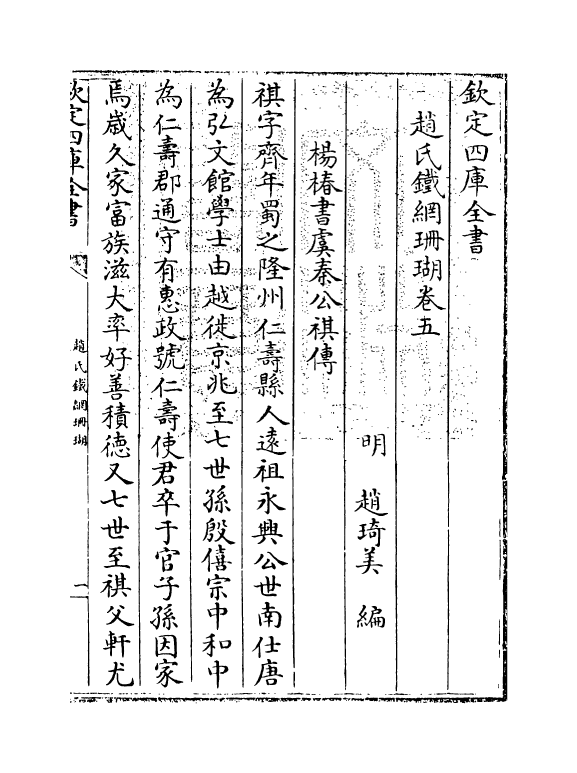 欽定四庫全書
趙氏鐵網珊瑚卷五
明　趙琦美　編
楊椿書虞秦公祺傳
祺字齊年蜀之隆州仁壽縣人遠祖永興公世南仕唐
為弘文館學士由越徙京兆至七世孫殷僖宗中和中
為仁壽郡通守有惠政號仁壽使君卒于官子孫因家
焉歲久家富族滋大率好善積德又七世至祺父軒尤
欽定四庫全書
趙氏鐵網珊瑚
一